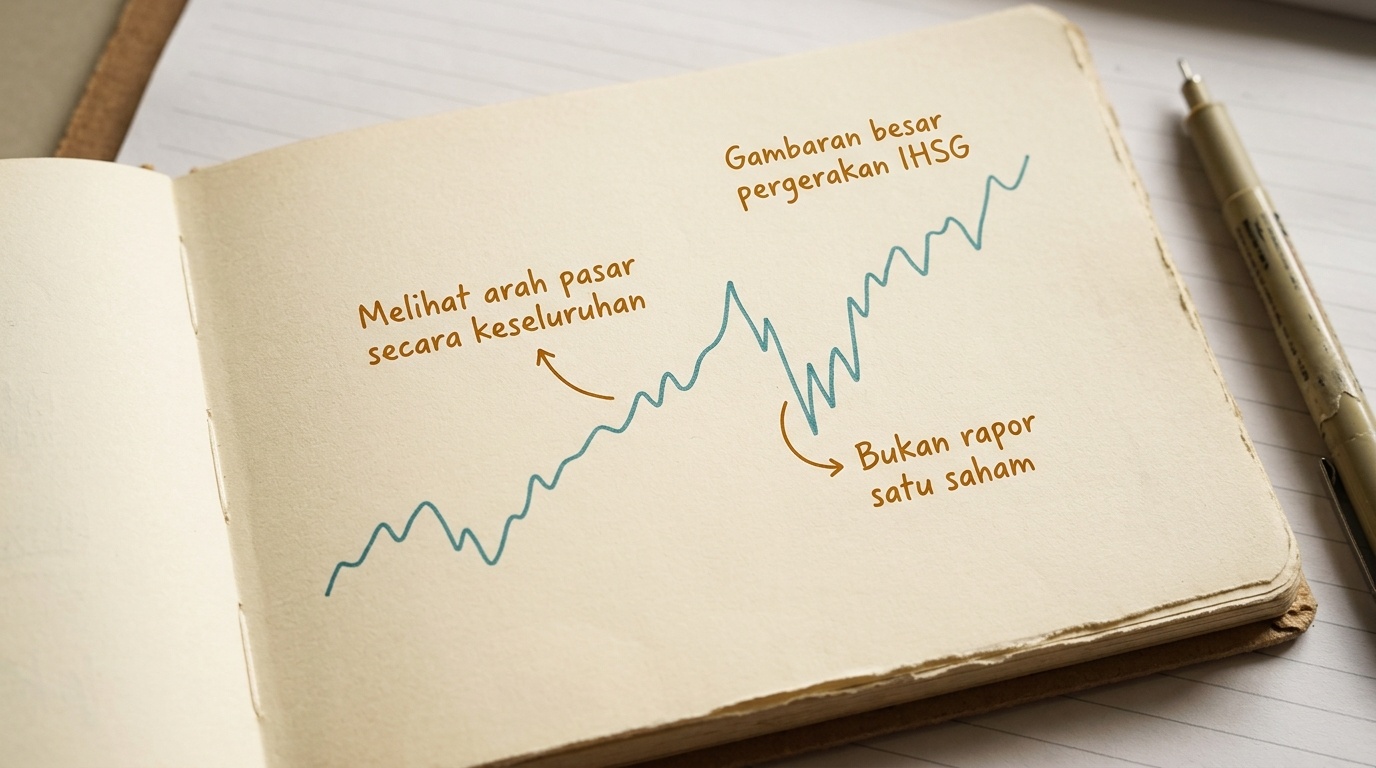 Gambaran besar
pergerakan IHSG
Melihat arah pasar
secara keseluruhan
Bukan rapor
satu saham